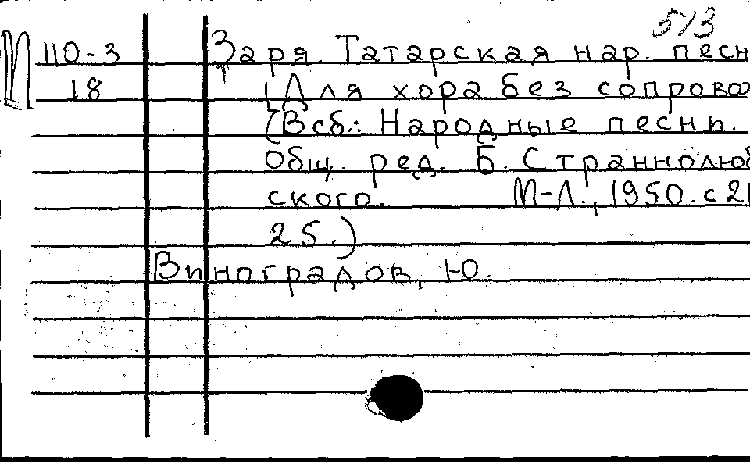 513
П 110-3 Заря. Татарская нар. песн
18 (Для хора без сопрово
(В сб.: Народные песни.
Общ. ред. Б. Страннолюб
ского. М-Л., 1950. с 21
25.)
Виноградов, Ю.